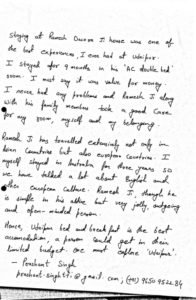 Staying at Ramesh Dwivedi Ji house was one of
the best experiences, I ever had at Udaipur.
I stayed for 9 months in his 'AC double bed'
room. I must say it was value for money.
I never had any problems and Ramesh Ji along
with his family members took a good care
for my room, myself and my belonging
Ramesh Ji has travelled extensively not only in
down countries but also european countries. I
myself stayed in Australia for three years so
we have talked a lot about England and
other European culture. Ramesh Ji, though he
is simple in his attire but very jolly, outgoing
and open-minded person.
Hence, Udaipur bed and breakfast is the best
accomodation a person could get in their
limited budget. One must explore 'Udaipur'.
- Prashant Singh